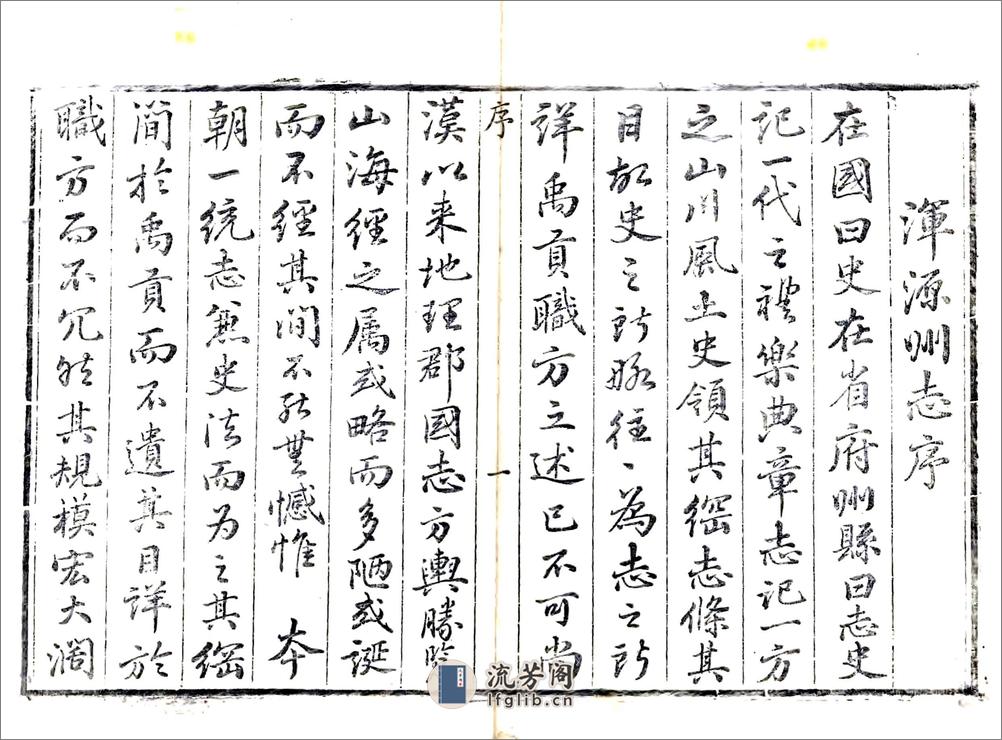 渾源州志序
在國曰史在省府州縣曰志史
記一代之禮樂典章志記一方
之山川風土史領其綱志條其
目故史之所略往〻為志之所
詳禹貢職方之述已不可尚
序
一
漢以来地理郡國志方輿勝
山海經之属或略而多陋或誕
而不經其間不能無憾惟 本
朝一统志兼史法而为之其綱
簡於禹貢而不遺其目詳於
職方而不冗然其規模宏大濶
流芳阁
lfglib.cn